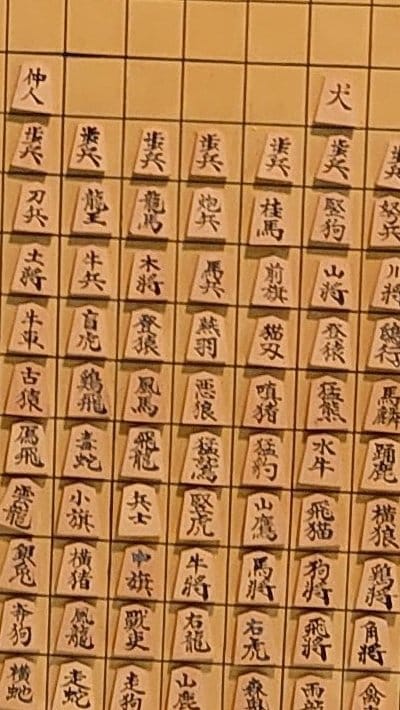 仲人 犬
歩兵 歩兵 歩兵 歩兵 歩兵 歩兵 歩兵
刀兵 龍王 龍馬 炮兵 桂馬 竪狗 弩兵
土将 牛兵 木将 馬兵 前旗 山将 川将
牛車 盲虎 登猿 燕羽 猫刄 登猿
古猿 鶏飛 風馬 悪狼 嗔猪 猛熊 馬麟
鳫飛 毒蛇 飛龍 猛鷲 猛豹 水牛 踊鹿
雲龍 小旗 兵士 竪虎 山鷹 飛猫 横狼
銀兔 横猪 中旗 牛将 馬将 狗将 鶏将
奔狗 風龍 右龍 右虎 飛将 角将
横虵 走蛇 走狗 山鹿 雨龍